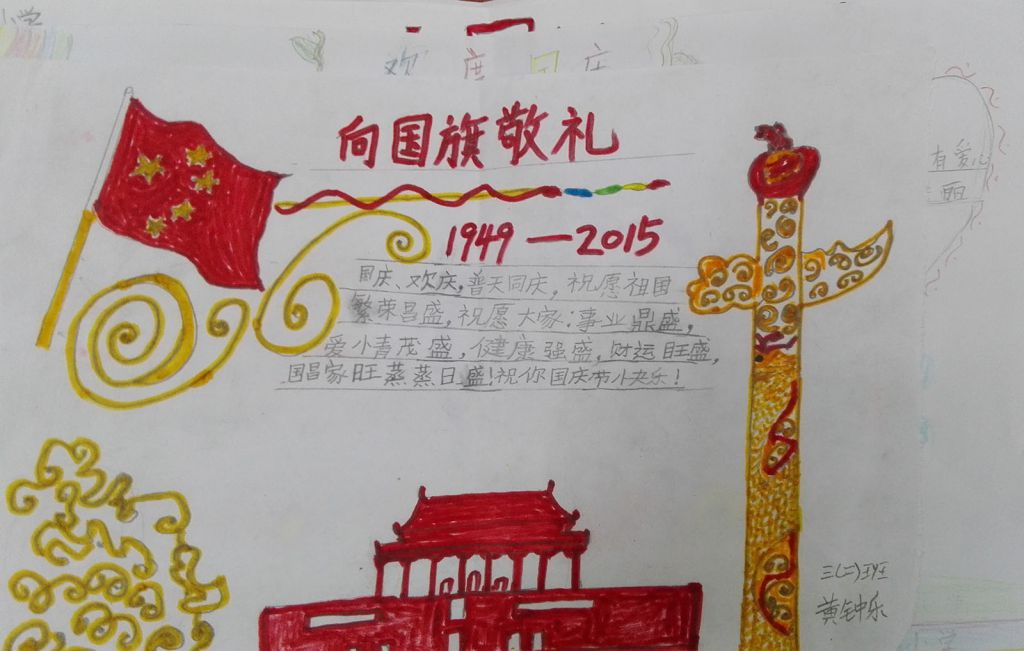 小学
欢度国庆
向国旗敬礼
1949—2015
国庆、欢庆,普天同庆,祝愿祖国
繁荣昌盛,祝愿大家:事业鼎盛,
爱小青茂盛,健康强盛,财运旺盛,
国昌家旺蒸蒸日盛!祝你国庆节小夬乐!
有爱心
三(二)班
黄钟乐
小学